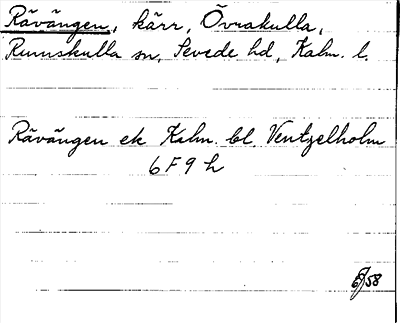 Rävängen, kärr, Övrakulla,
Rumskulla sn, Sevede hd, Kalm. l.
Rävängen ek Kalm. bl. Ventzelholm
6 F 9 h
6/58